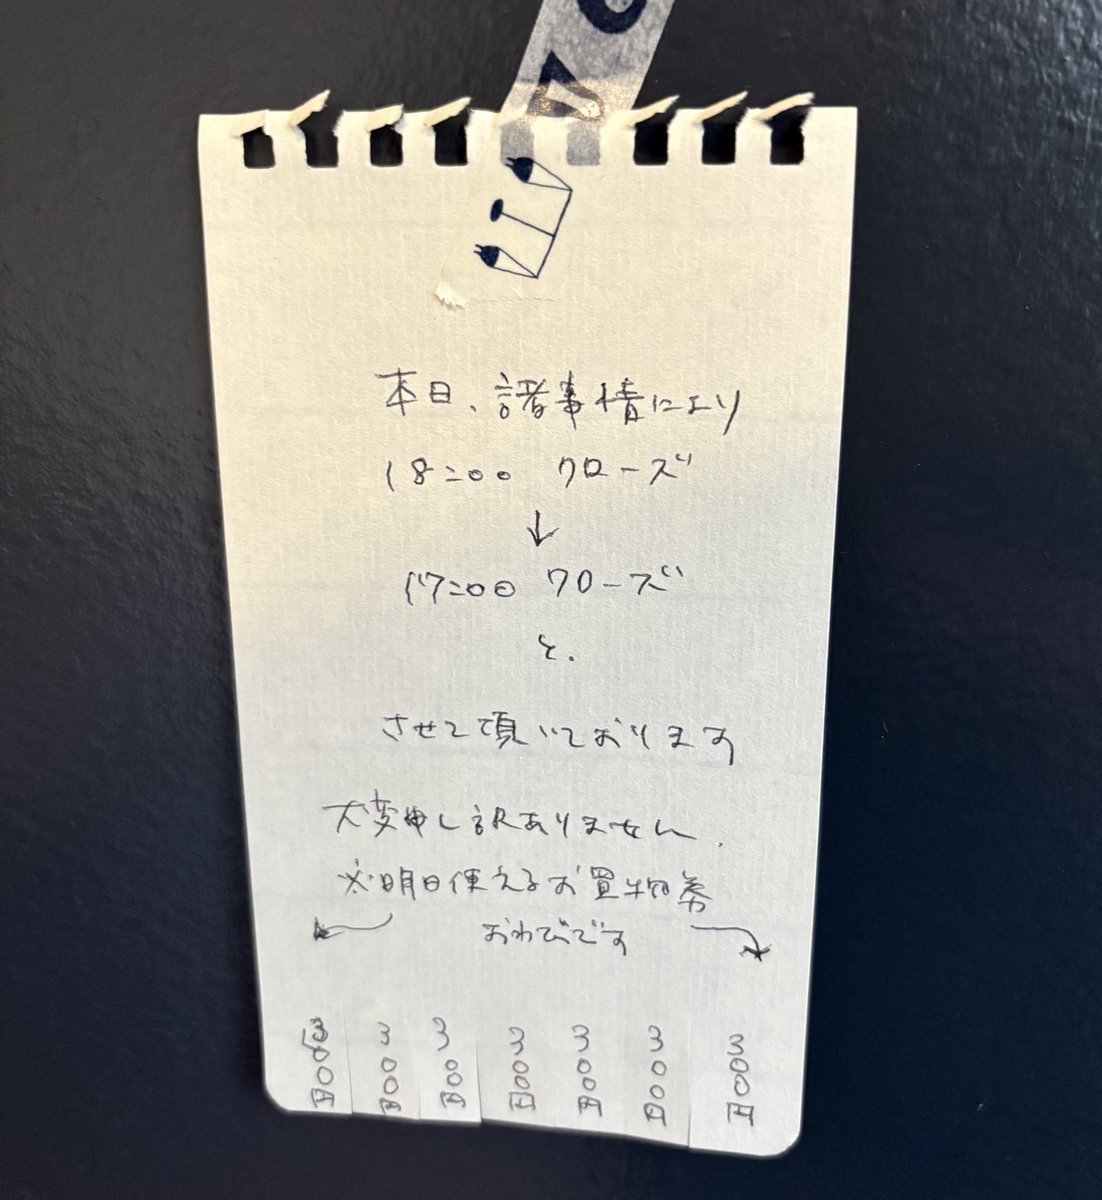 本日、諸事情により
18:00 クローズ
↓
17:00 クローズ
と、
させて頂いております
大変申し訳ありません、
※明日使えるお買物券
おわびです
300円
300円
300円
300円
300円
300円
300円